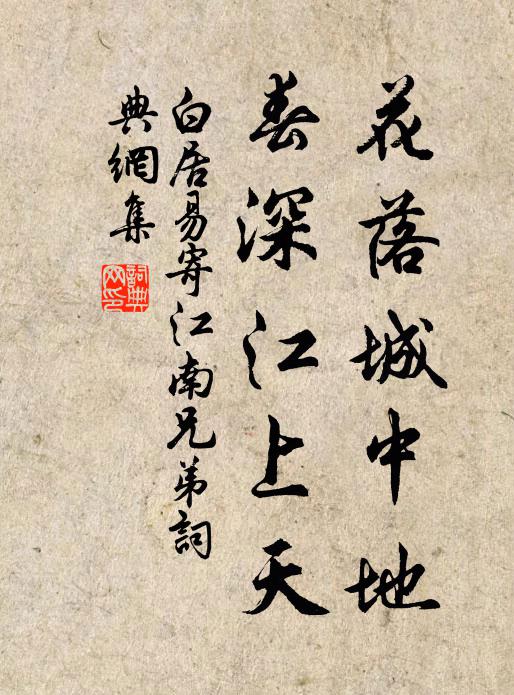 花落城中地
春深江上天
白居易寄江南兄弟詞
典網集
詞典
网印